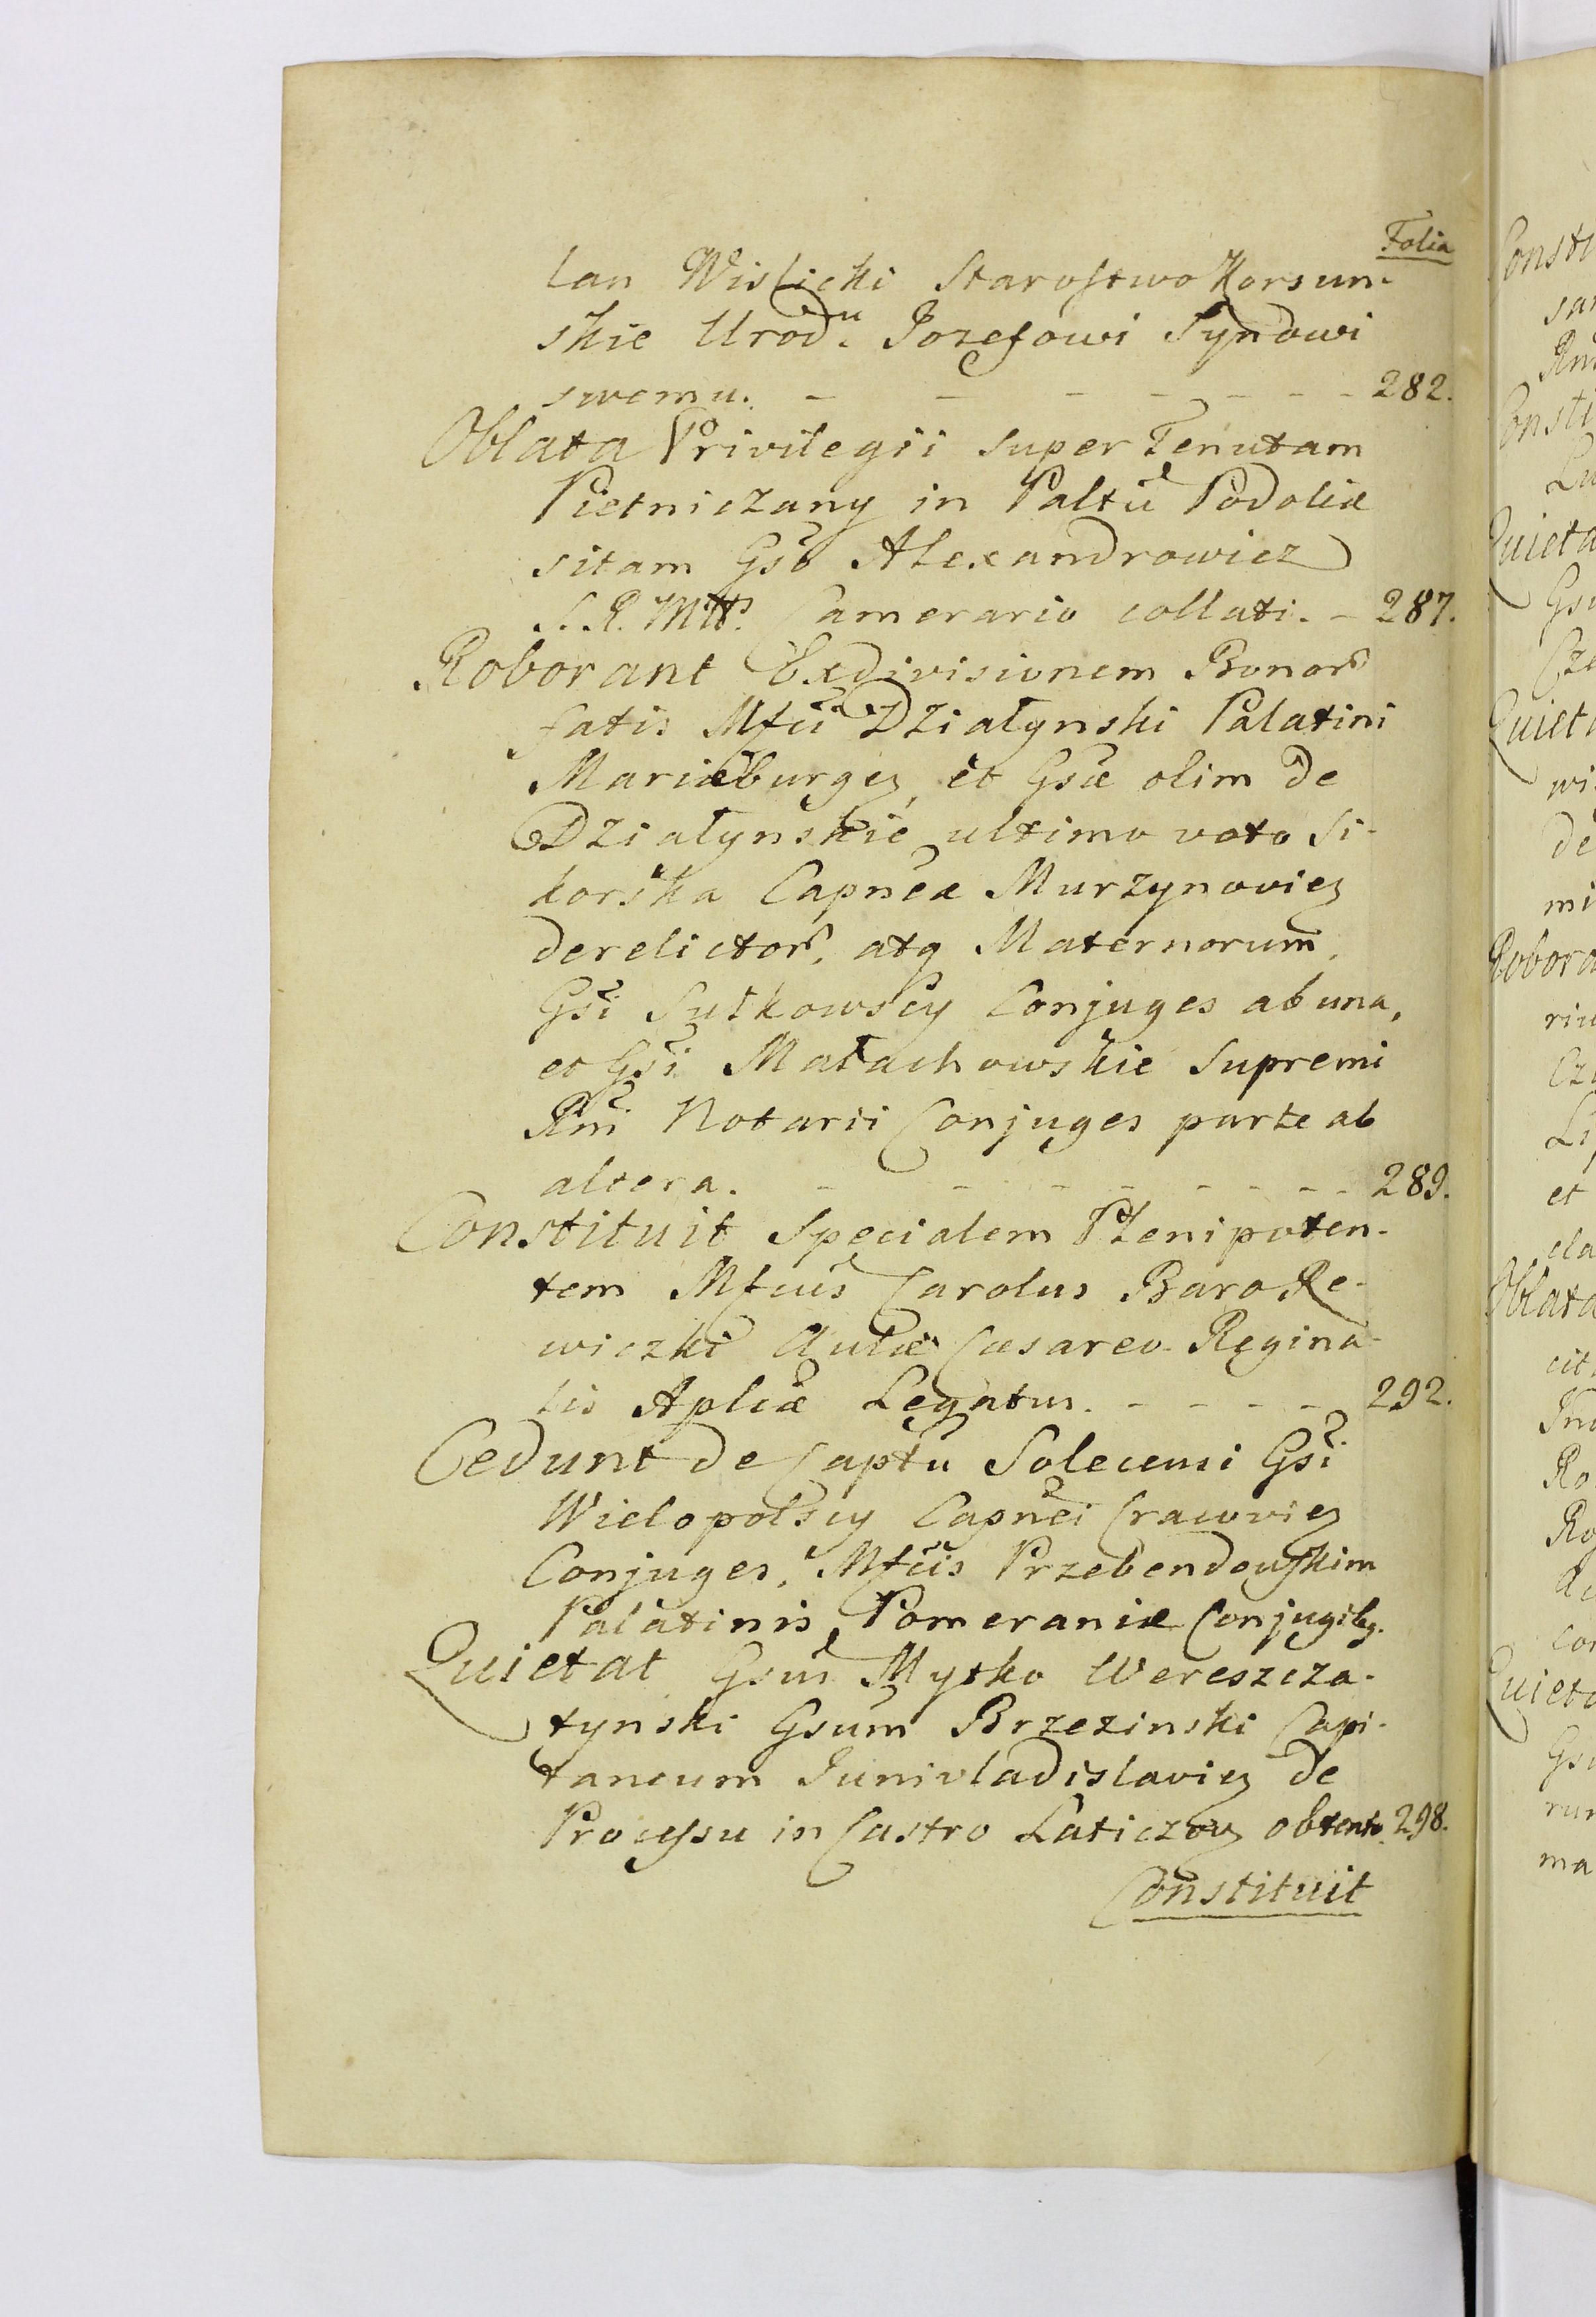 Folia
lan Wislicki Starostwo Korsun-
skie Urod: Jozefowi Synowi
swemu. - - - - - - - 282.
Oblata Privilegii super Tenutam
Pietniczany in Paltu Podoliæ
sitam Gso Alexandrowicz
S. R. Mtts. Camerario collati. - 287.
Roborant Exdivisionem Bonor
fatis Mfci Działynski Palatini
Mariæburgen, et Gsæ olim de
Działynskie ultimo voto Si-
korska Capneæ Murzynovien
derelictor, atq Maternorum,
Gsi Sułkowscy Conjuges ab una,
et Gsi Małachowskie Supremi
Rni Notarii Conjuges parte ab
altera. - - - - - - - 289.
Constituit Specialem Plenipoten-
tem Mfcus Carolus Baro Re-
wiczki Aulæ Cæsareo-Regina-
lis Apliæ Legatus. - - - - 292.
Cedunt de Captu Solecensi Gsi
Wielopolscy Capnei Cracovien
Conjuges, Mfcis Przebendowskim
Palatinis Pomeraniæ Conjugibq.
Quietat Gsus Mytko Wereszcza-
tynski Gsum Brzezinski Capi-
taneum Junivladislavien de
Processu in Castro Laticzov obtento. 298.
Constituit
Consti
sar
Rn
Consti
Lu
Quieta
Gsu
Cze
Quieta
wi
de
mi
Robora
riu
Cz
Li
et
cla
Oblata
cit
Ro
con
Quieta
Gsu
run
ma